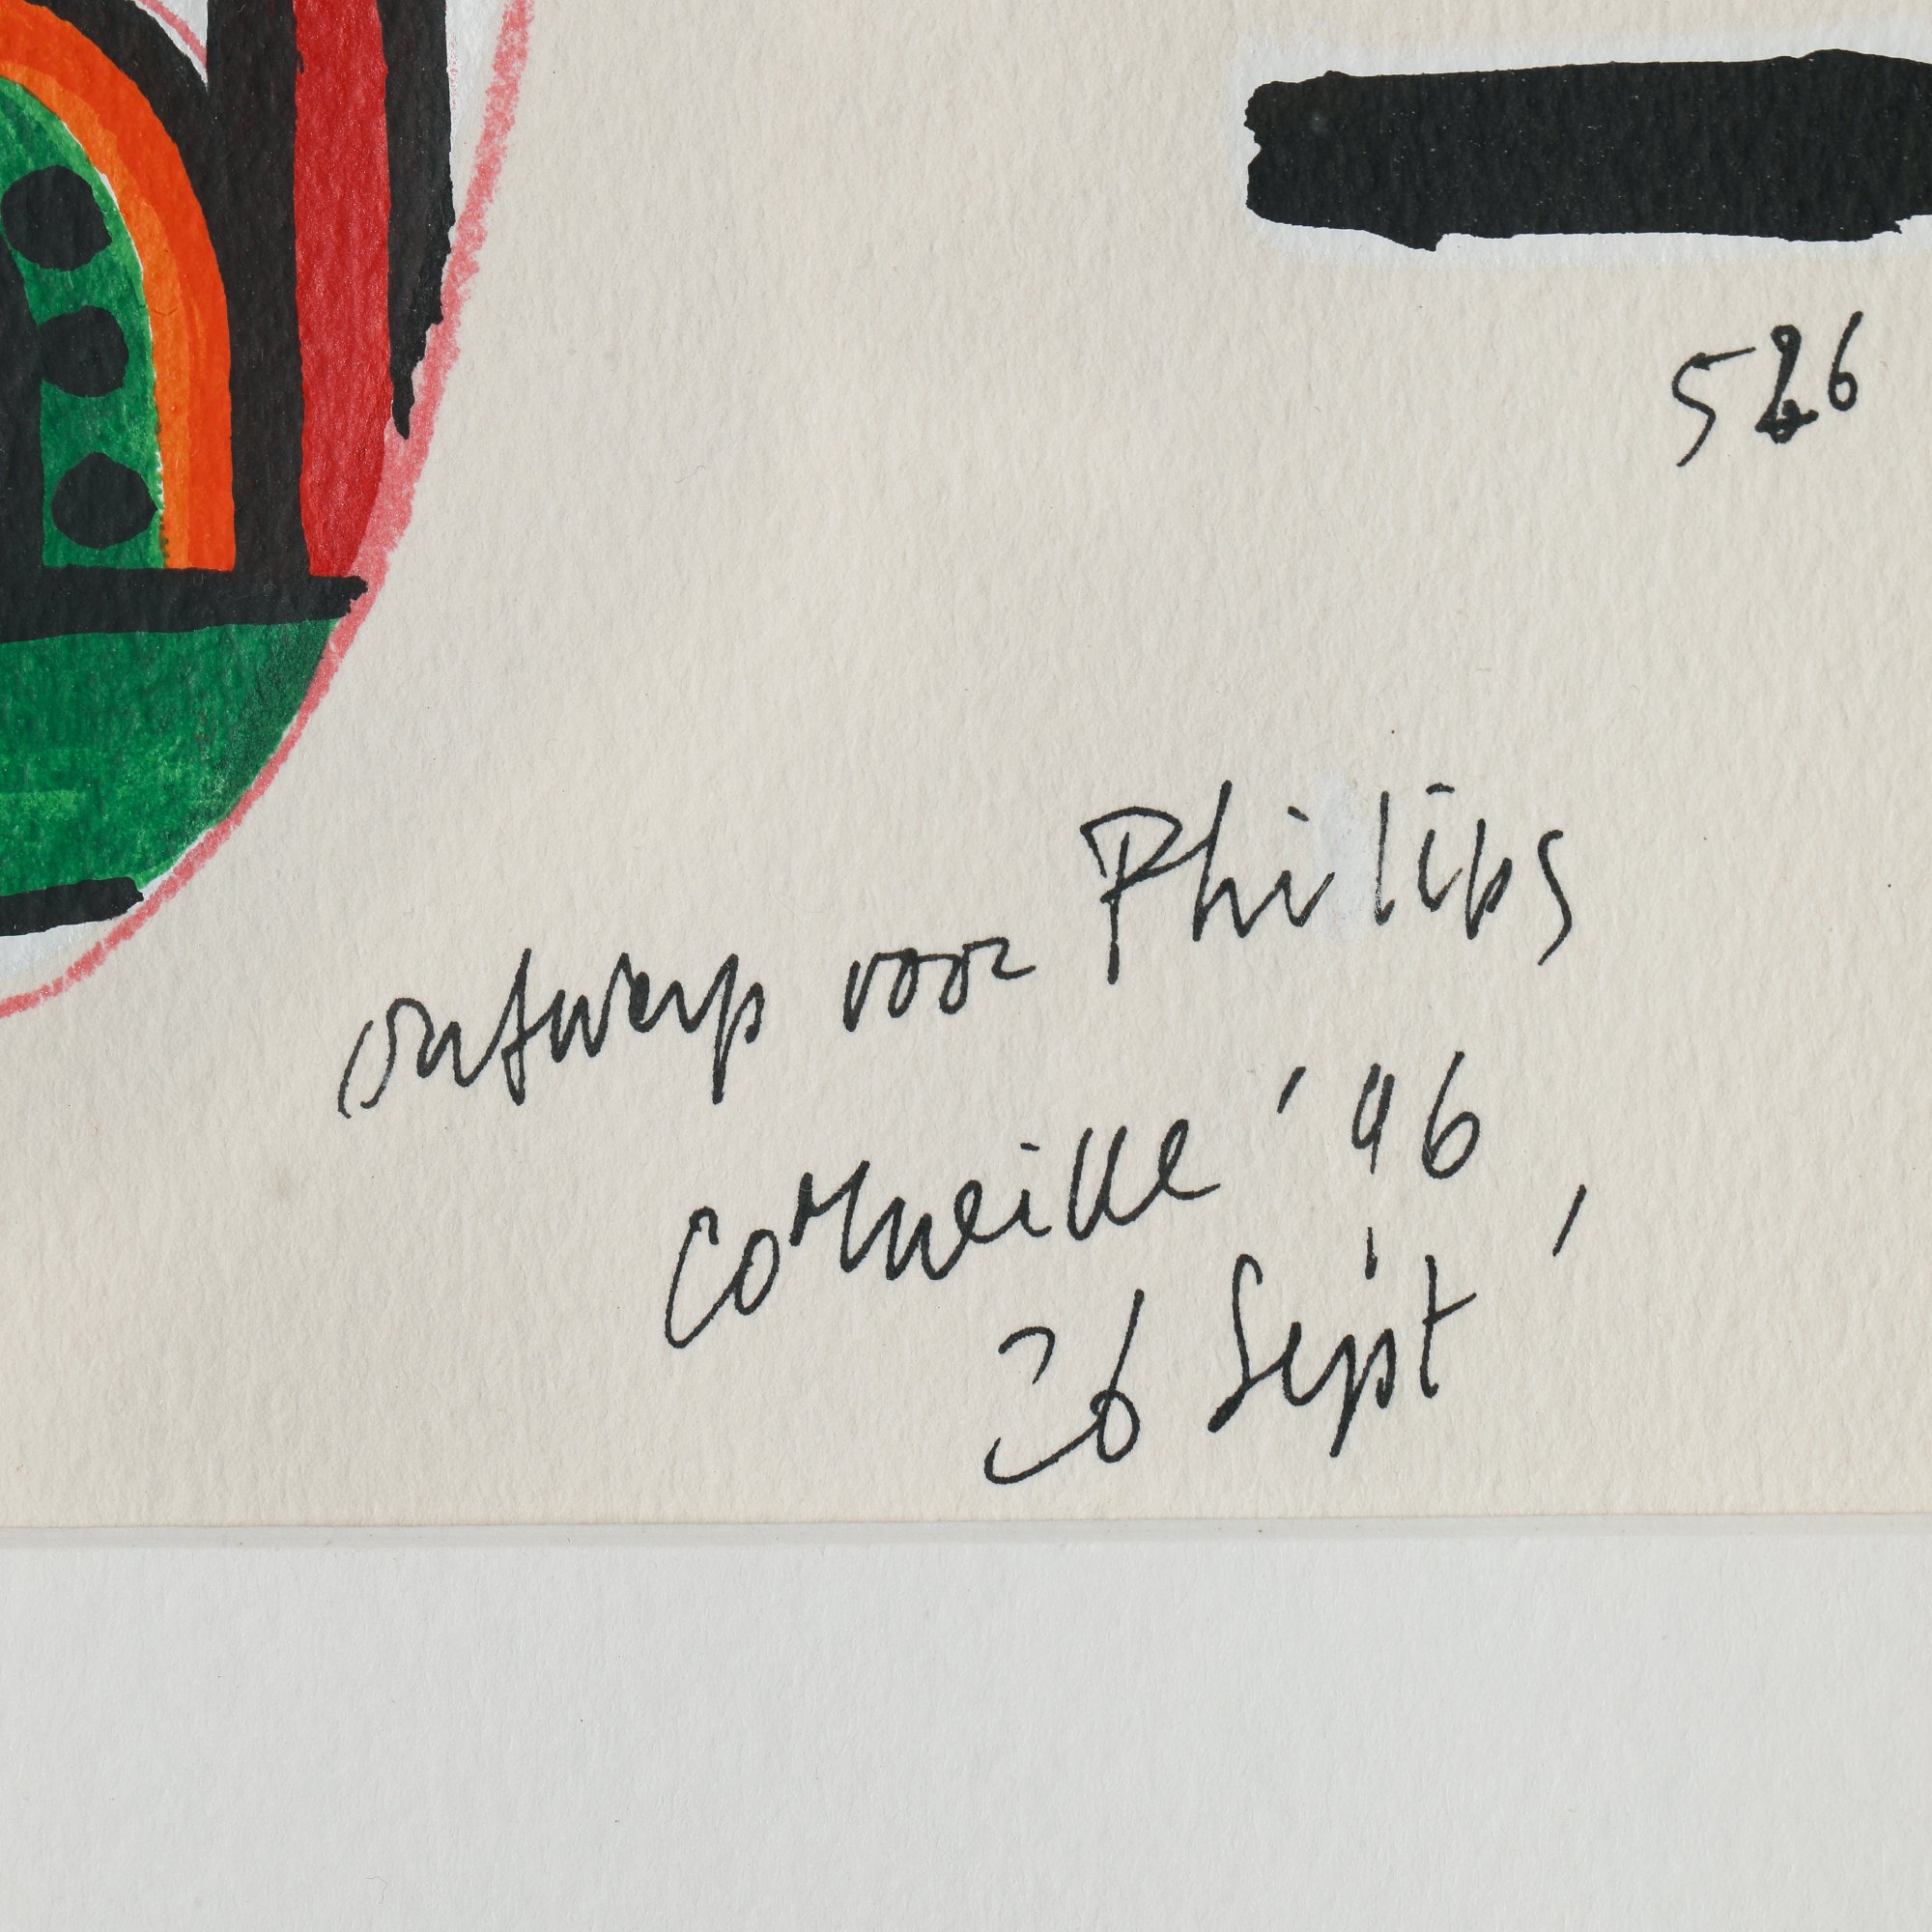 526
ontwerp voor Philips
Corneille '96
26 Sept '